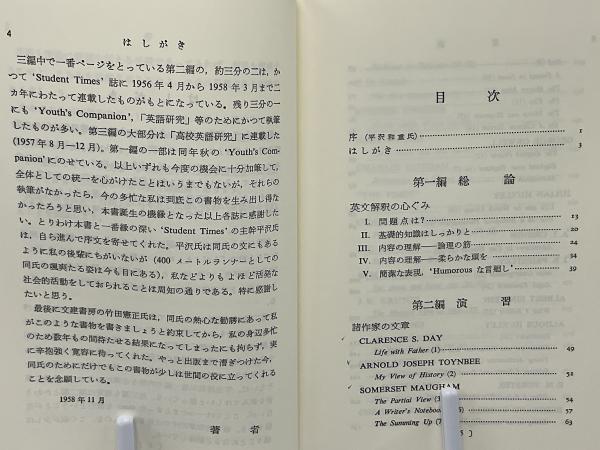 4
はしがき
三編中で一番ページをとっている第二編の，約三分の二は，か
つて ‘Student Times’ 誌に 1956 年 4 月から 1958 年 3 月まで二
カ年にわたって連載したものがもとになっている。残り三分の一
にも ‘Youth's Companion’，「英語研究」等のためにかつて執筆
したものが多い。第三編の大部分は「高校英語研究」に連載した
(1957 年 8 月—12 月)。第一編の一部は同年秋の ‘Youth's Com-
panion’ にのせている。以上いずれも今度の機会に十分加筆して，
全体としての統一を心がけたことはいうまでもないが，それらの
執筆がなかったら，今の多忙な私は到底この書物を生み出し得な
かったろうと思い，本書誕生の機縁となった以上各誌に感謝した
い。とりわけ本書と一番縁の深い ‘Student Times’ の主幹平沢氏
は，自ら進んで序文を寄せてくれた。平沢氏は同氏の文にもある
ように私の後輩にちがいないが (400 メートルランナーとしての
同氏の颯爽たる姿は今も目にある)，私などよりもよほど活発な
社会的活動をしておられることは周知の通りである。特に感謝し
たいと思う。
最後に文建書房の竹田憲正氏は，同氏の熱心な勧誘にあって私
がこのような書物を書きましょうと約束してから，私の身辺多忙
のため数年もの間待たせる結果になってしまったにも拘らず，実
に辛抱強く寛容に待ってくれた。やっと出版まで漕ぎつけた今，
同氏のためにだけでもこの書物が少しは世間の役に立ってくれる
ことを念願している。
1958 年 11 月
著者
目次
序 (平沢和重氏) 1
はしがき 3
第一編 総論
英文解釈の心ぐみ
I. 問題点は? 13
II. 基礎的知識はしっかりと 20
III. 内容の理解——論理の筋 24
IV. 内容の理解——柔らかな頭を 34
V. 簡潔な表現，‘Humorous な言廻し’ 39
第二編 演習
諸作家の文章
CLARENCE S. DAY
Life with Father (1) 49
ARNOLD JOSEPH TOYNBEE
My View of History (2) 51
SOMERSET MAUGHAM
The Partial View (3 54
A Writer's Notebook 6) 57
The Summing Up (7 63
5 ]